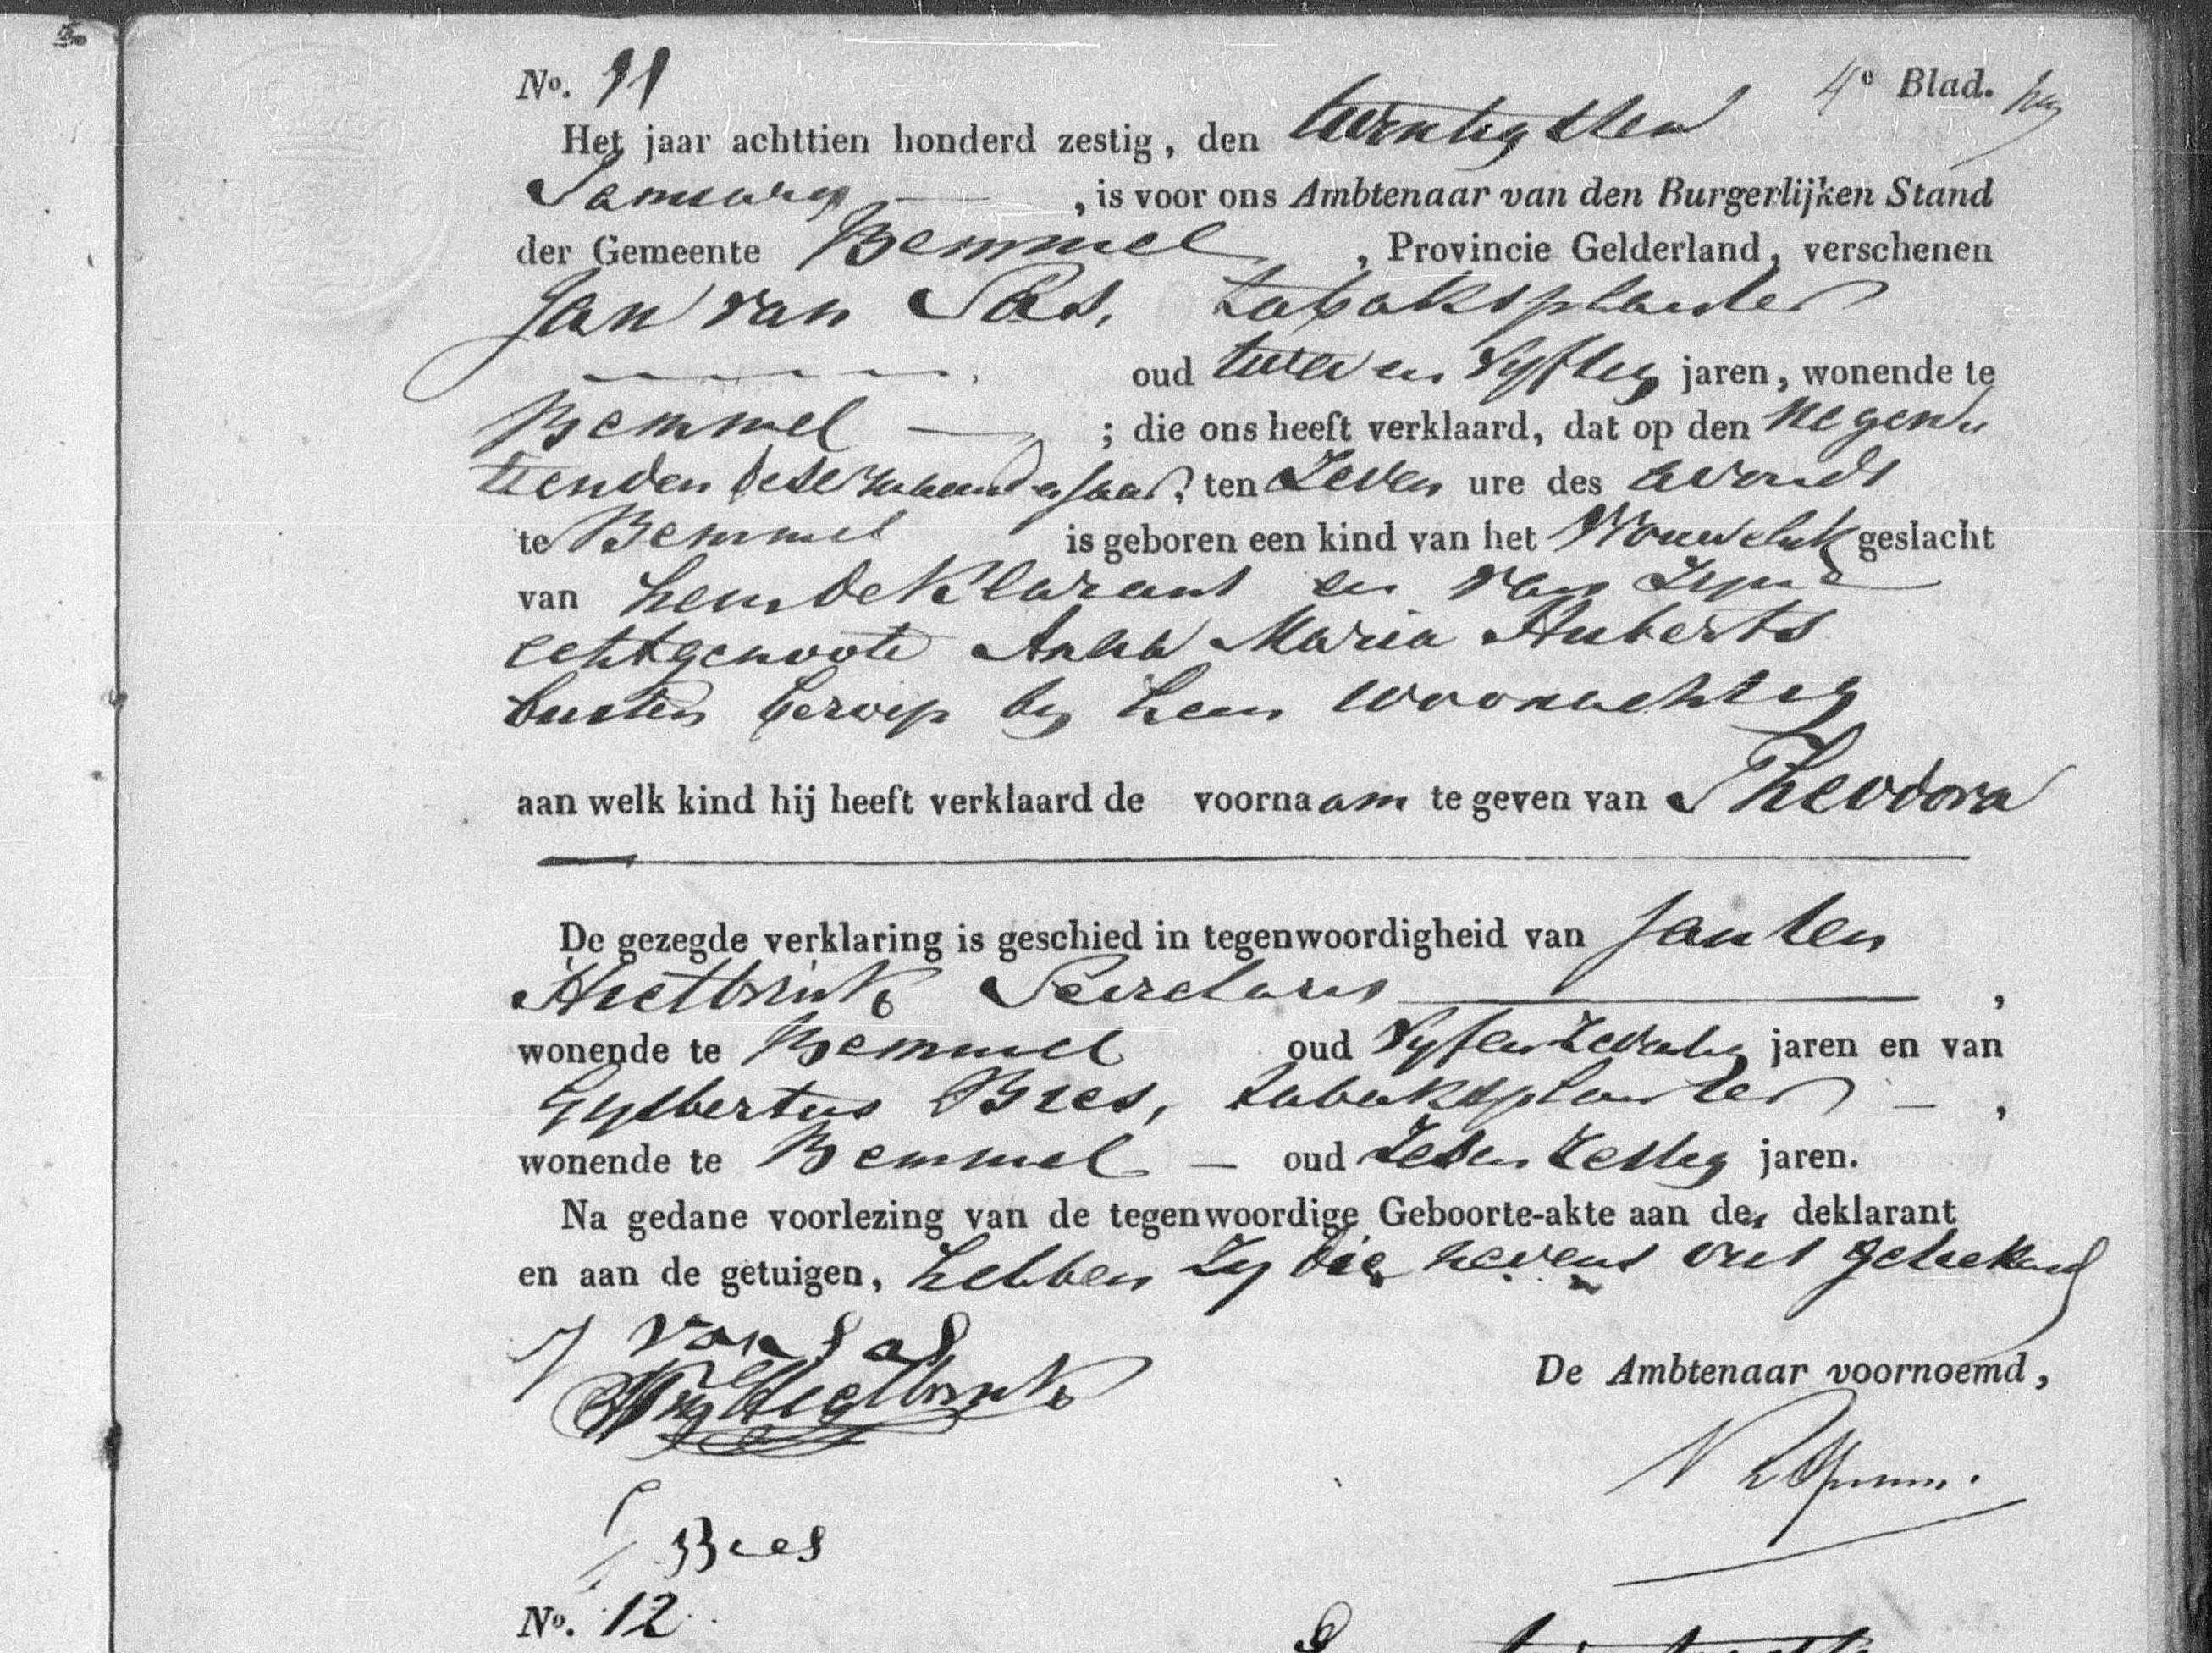 No. 11
4e Blad.
Het jaar achttien honderd zestig, den twintigsten
Januarij, is voor ons Ambtenaar van den Burgerlijken Stand
der Gemeente Bemmel, Provincie Gelderland, verschenen
Jan van Sas, tabaksplanter
oud twee en vyftig jaren, wonende te
Bemmel ; die ons heeft verklaard, dat op den negen
tienden dezer maand en jaar, ten zeven ure des avonds
te Bemmel is geboren een kind van het Vrouwelyk geslacht
van hem deklarant en van zyne
echtgenoote Anna Maria Huberts
buiten beroep by hem woonachtig
aan welk kind hij heeft verklaard de voornaam te geven van Theodora
De gezegde verklaring is geschied in tegenwoordigheid van Jan ten
Hietbrink Secretaris,
wonende te Bemmel oud vyf en zeventig jaren en van
Gysbertus Bres, tabaksplanter - ,
wonende te Bemmel - oud zes en zestig jaren.
Na gedane voorlezing van de tegenwoordige Geboorte-akte aan den deklarant
en aan de getuigen, hebben zy die nevens ons geteekend
J van Sas
De Ambtenaar voornoemd,
Hietbrink
G Bres
No. 12